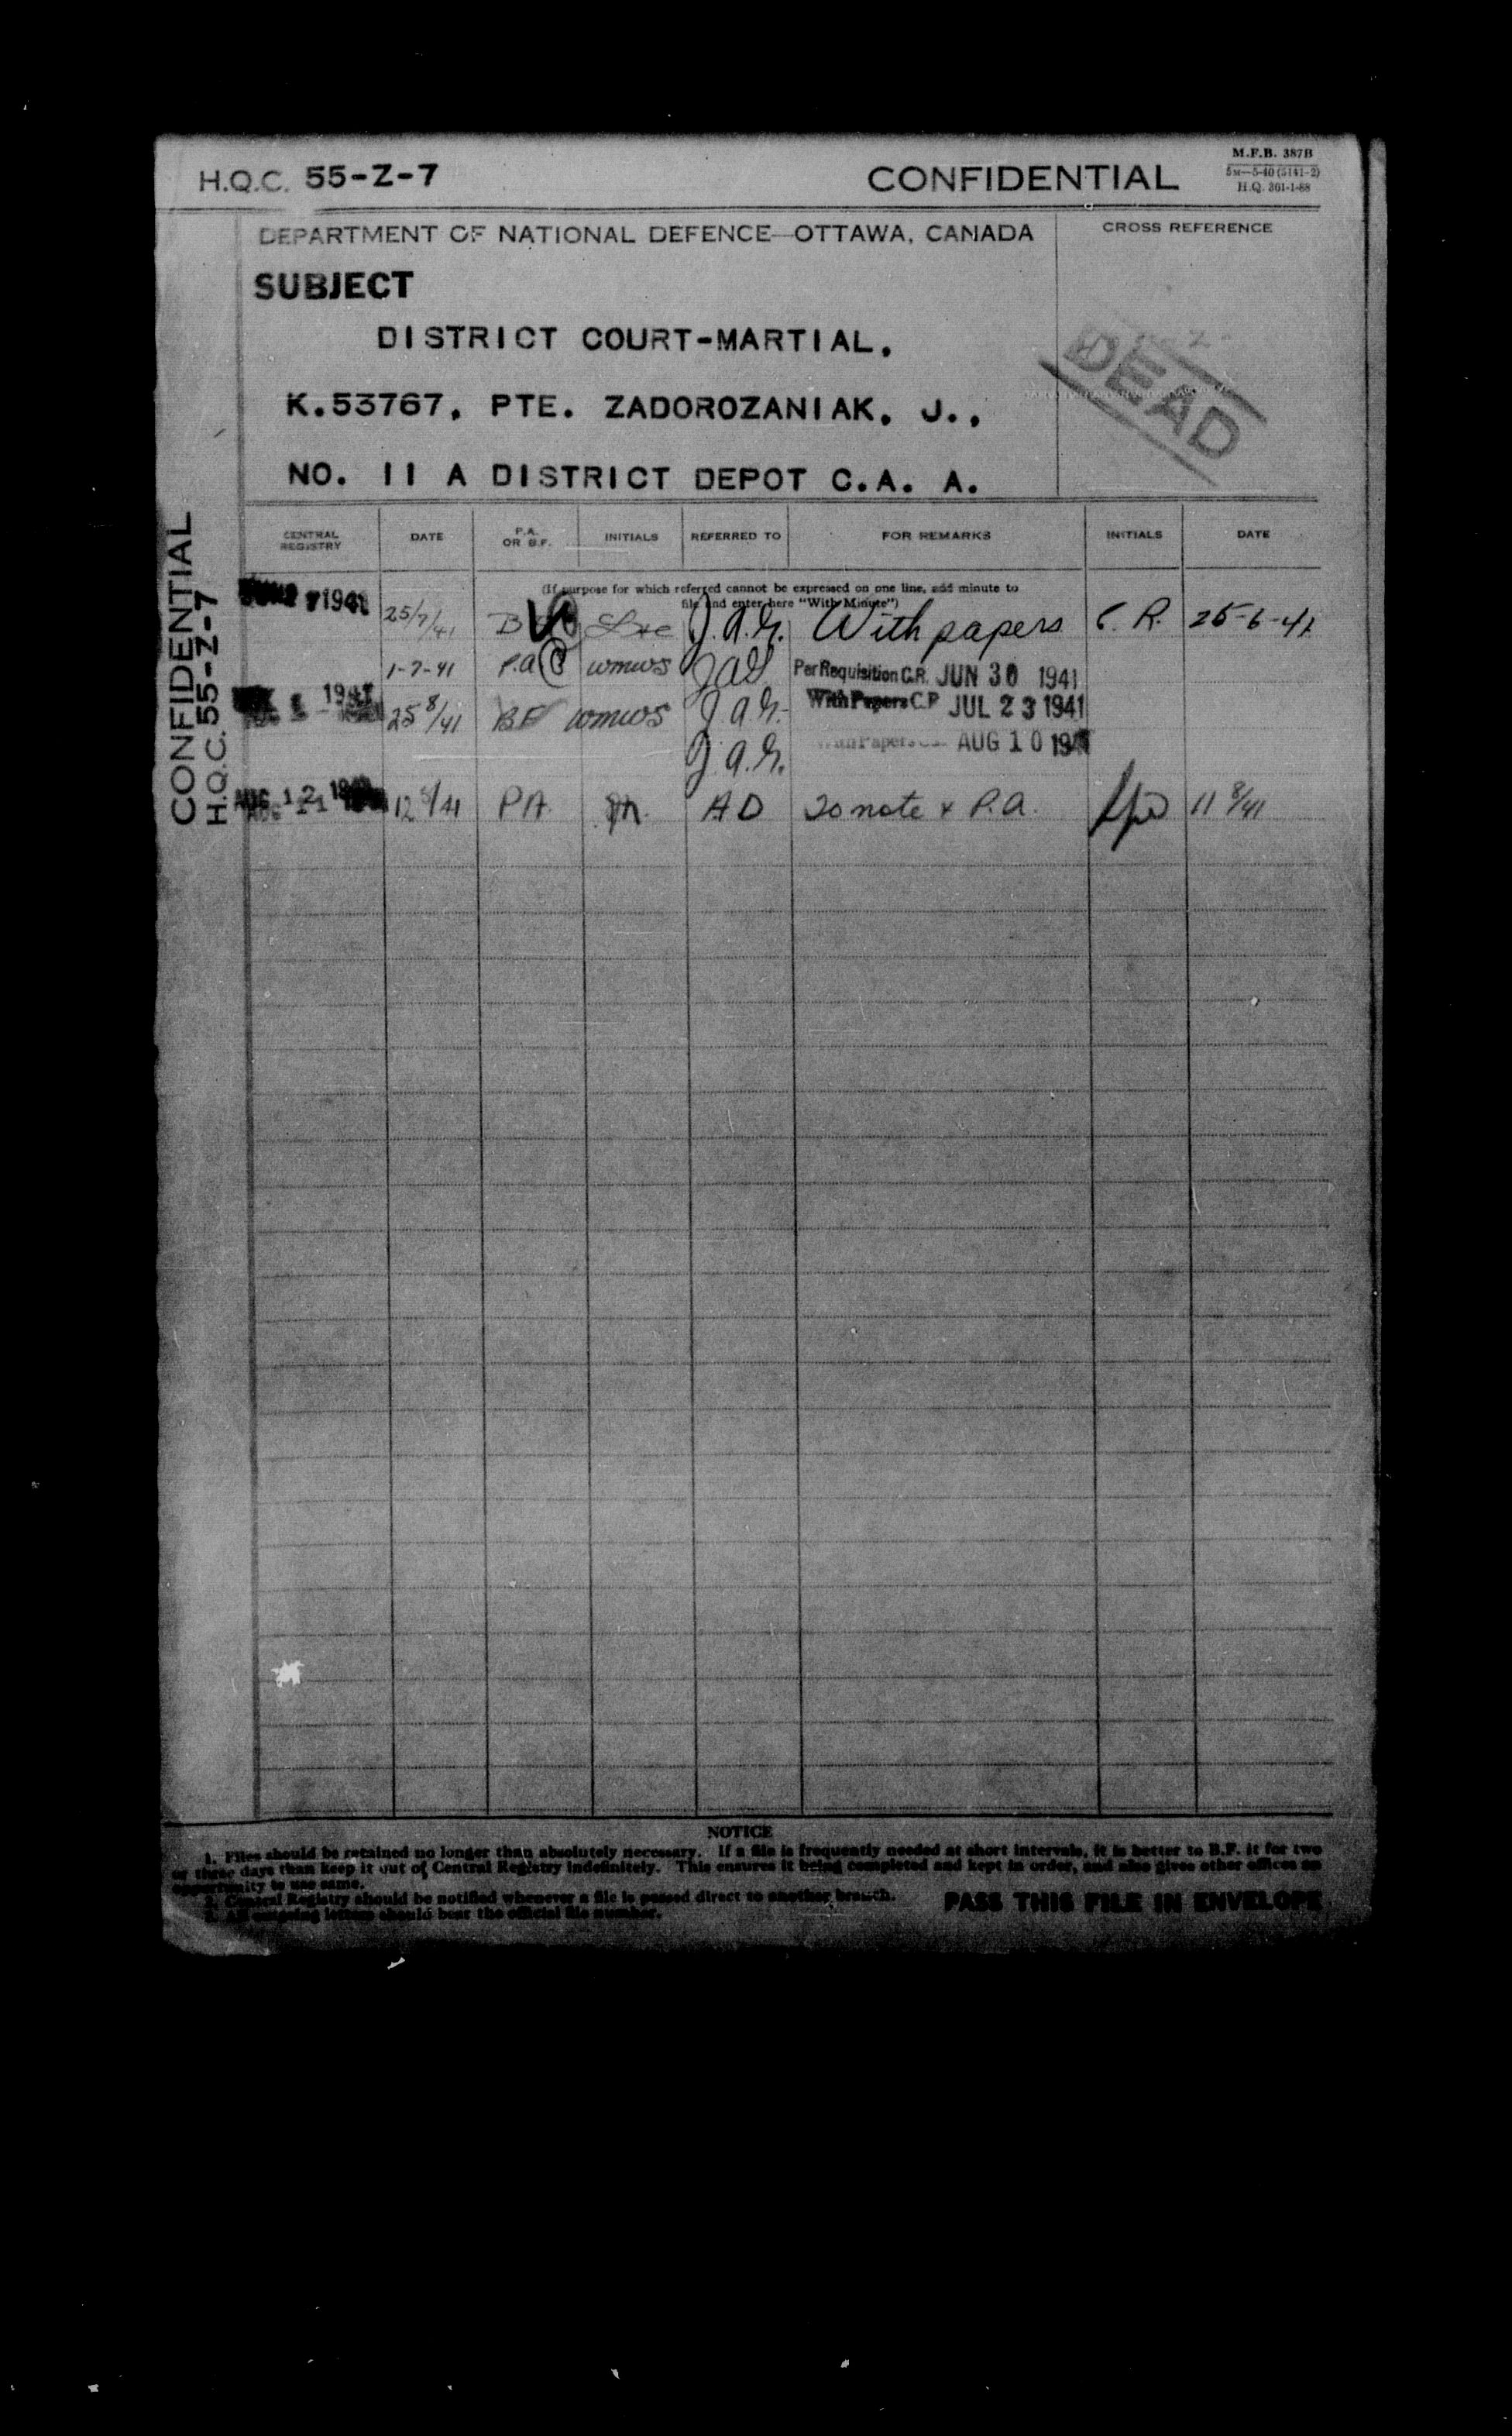 H.Q.C. 55-Z-7
CONFIDENTIAL
M.F.B. 387B
5M—5-40 (5141-2)
H.Q. 301-1-88
DEPARTMENT OF NATIONAL DEFENCE—OTTAWA, CANADA
CROSS REFERENCE
SUBJECT
DISTRICT COURT-MARTIAL.
K.53767, PTE. ZADOROZANIAK, J.,
NO. 11 A DISTRICT DEPOT C.A. A.
DEAD
CONFIDENTIAL
H.Q.C. 55-Z-7
CENTRAL REGISTRY DATE P.A. OR B.F. INITIALS REFERRED TO FOR REMARKS INITIALS DATE
(If purpose for which referred cannot be expressed on one line, add minute to
file and enter here "With Minute")
1941 25/7/41 J.A.G. With papers C. R. 25-6-41
1-7-41 P.A. WMWS JAG Per Requisition C.R. JUN 30 1941
1941 25 8/41 BF WMWS J.A.G. With Papers C.R. JUL 23 1941
J.A.G. With Papers AUG 10 194
AUG 12 12 8/41 PA. AD To note & P.A. 11 8/41
NOTICE
1. Files should be retained no longer than absolutely necessary. If a file is frequently needed at short intervals, it is better to B.F. it for two
or three days than keep it out of Central Registry indefinitely. This ensures it being completed and kept in order, and also gives other offices an
opportunity to use same.
2. Central Registry should be notified whenever a file is passed direct to another branch.
3. All outgoing letters should bear the official file number.
PASS THIS FILE IN ENVELOPE